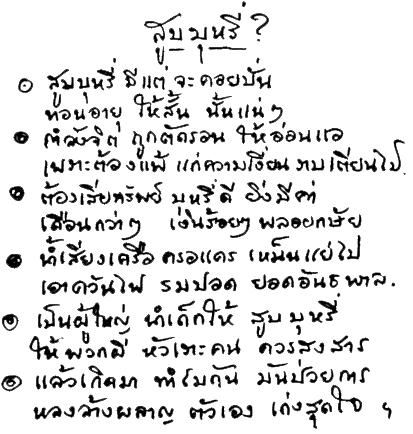 สูบบุหรี่ ?
๏ สูบบุหรี่ มีแต่ จะคอยบั่น
ทอนอายุ ให้สั้น นั้นแน่ๆ
● กำลังจิต ถูกตัดรอน ให้อ่อนแอ
เพราะต้องแพ้ แก่ความเงี่ยน งาบเตียนไป.
● ต้องเสียทรัพย์ บุหรี่ดี ยิ่งมีค่า
เดือนกว่าๆ เงินร้อยๆ พลอยกษัย
● น้ำเสียงเครือ ครอแคร เหม็นแย่ไป
เอาควันไฟ รมปอด ยอดอันธพาล.
๏ เป็นผู้ใหญ่ นำเด็กให้ สูบบุหรี่
ให้พวกผี หัวเราะคน ควรสงสาร
๏ แล้วเกิดมา ทำไมกัน มันป่วยการ
หลงล้างผลาญ ตัวเอง เก่งสุดใจ ฯ